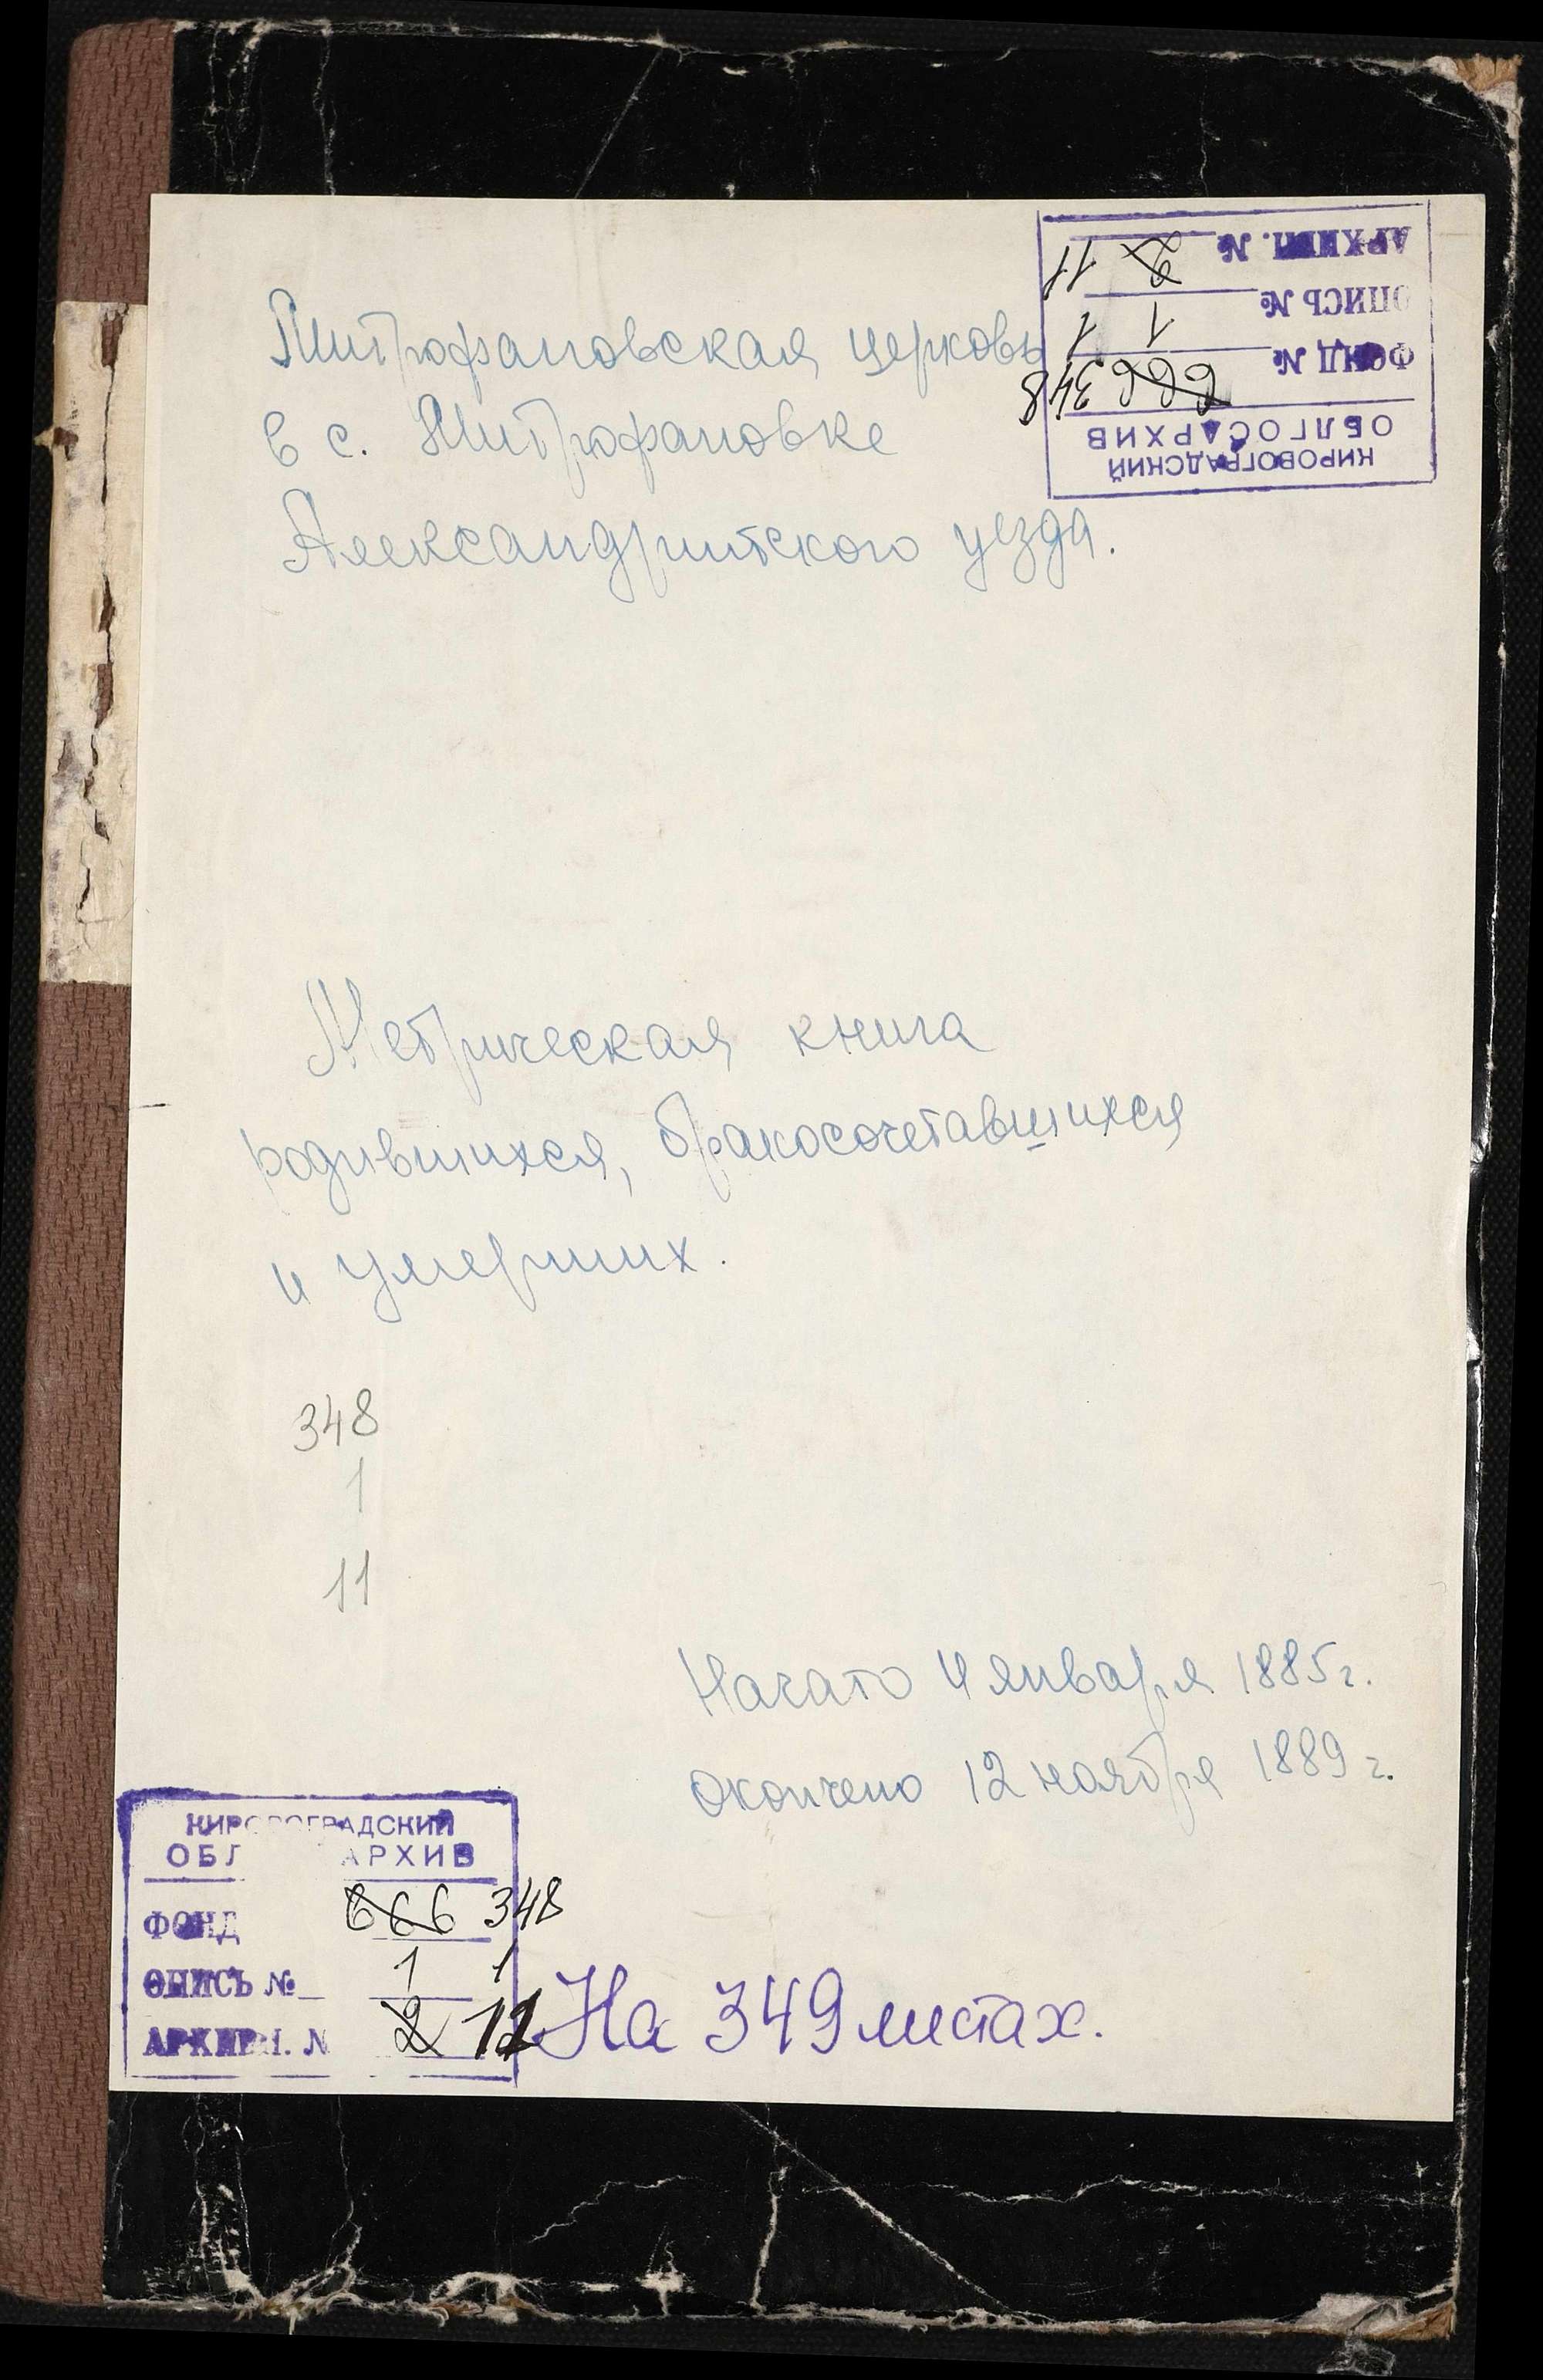 Митрофановская церковь
в с. Митрофановке
Александрийского уезда.
КИРОВОГРАДСКИЙ
ОБЛГОСАРХИВ
ФОНД № 666 348
ОПИСЬ № 1 1
АРХИВН. № 2 11
Метрическая книга
родившихся, бракосочетавшихся
и умерших.
348
1
11
Начато 4 января 1885 г.
Окончено 12 ноября 1889 г.
КИРОВОГРАДСКИЙ
ОБЛ АРХИВ
ФОНД 666 348
ОПИСЬ № 1 1
АРХИВН. № 2 11
На 349 листах.